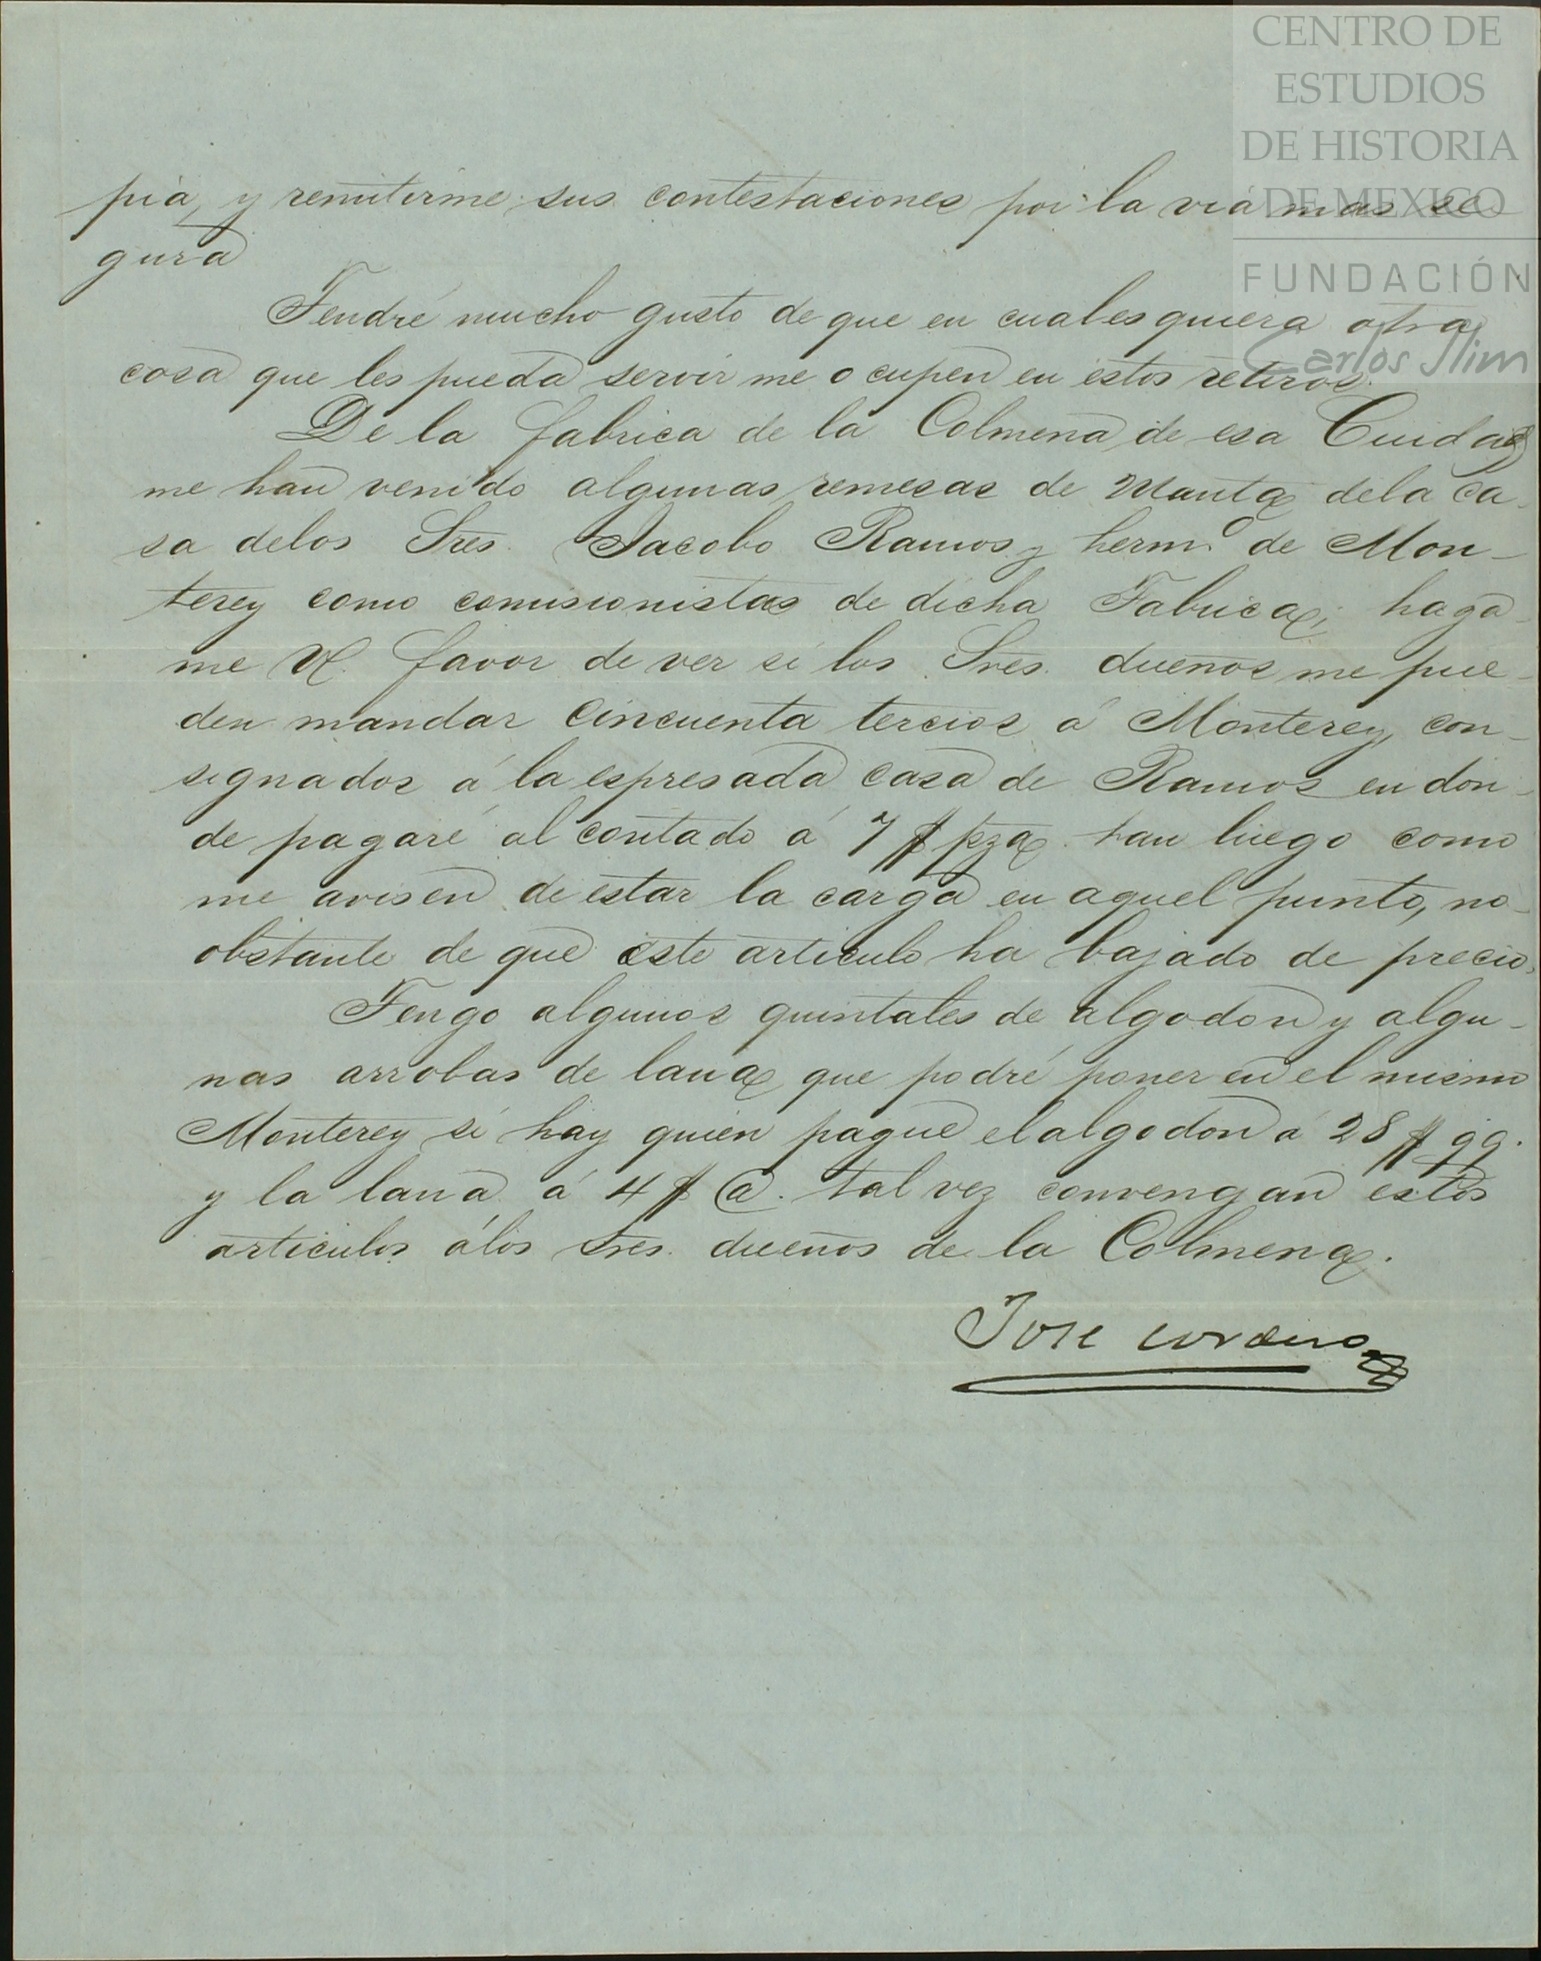 CENTRO DE
ESTUDIOS
DE HISTORIA
DE MEXICO
FUNDACIÓN
Carlos Slim
pia, y remitirme sus contestaciones por la via mas se-
gura
Tendré mucho gusto de que en cualesquiera otra
cosa que les pueda servir me ocupen en estos retiros.
De la fabrica de la Colmena de esa Ciudad
me han venido algunas remesas de Manta de la Ca-
sa de los Sres. Jacobo Ramos y hermo. de Mon-
terey como comisionistas de dicha Fabrica; haga-
me V. favor de ver si los Sres. dueños me pue-
den mandar cincuenta tercios á Monterey, con-
signados á la espresada casa de Ramos en don-
de pagaré al contado á 7 $ pza. tan luego como
me avisen de estar la carga en aquel punto, no
obstante de que este articulo ha bajado de precio.
Tengo algunos quintales de algodon y algu-
nas arrobas de lana que podré poner en el mismo
Monterey si hay quien pague el algodon á 28 $ qq.
y la lana á 4 $ @. tal vez convengan estos
articulos á los Sres. dueños de la Colmena.
Jose